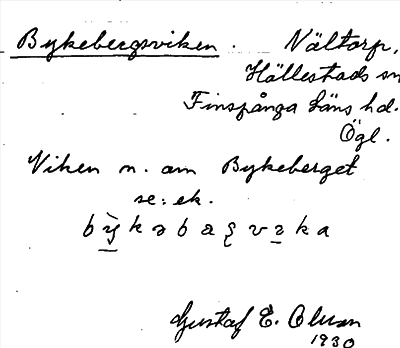 Bykebergsviken. Vältorp,
Hällestads sn
Finspånga läns hd.
Ögl.
Viken n. om Bykeberget
se: ek.
Gustaf E. Olson
1930